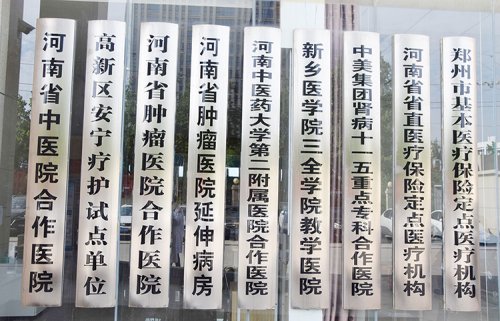 河南省中医院合作医院
高新区安宁疗护试点单位
河南省肿瘤医院合作医院
河南省肿瘤医院延伸病房
河南中医药大学第二附属医院合作医院
新乡医学院三全学院教学医院
中美集团肾病十一五重点专科合作医院
河南省省直医疗保险定点医疗机构
郑州市基本医疗保险定点医疗机构